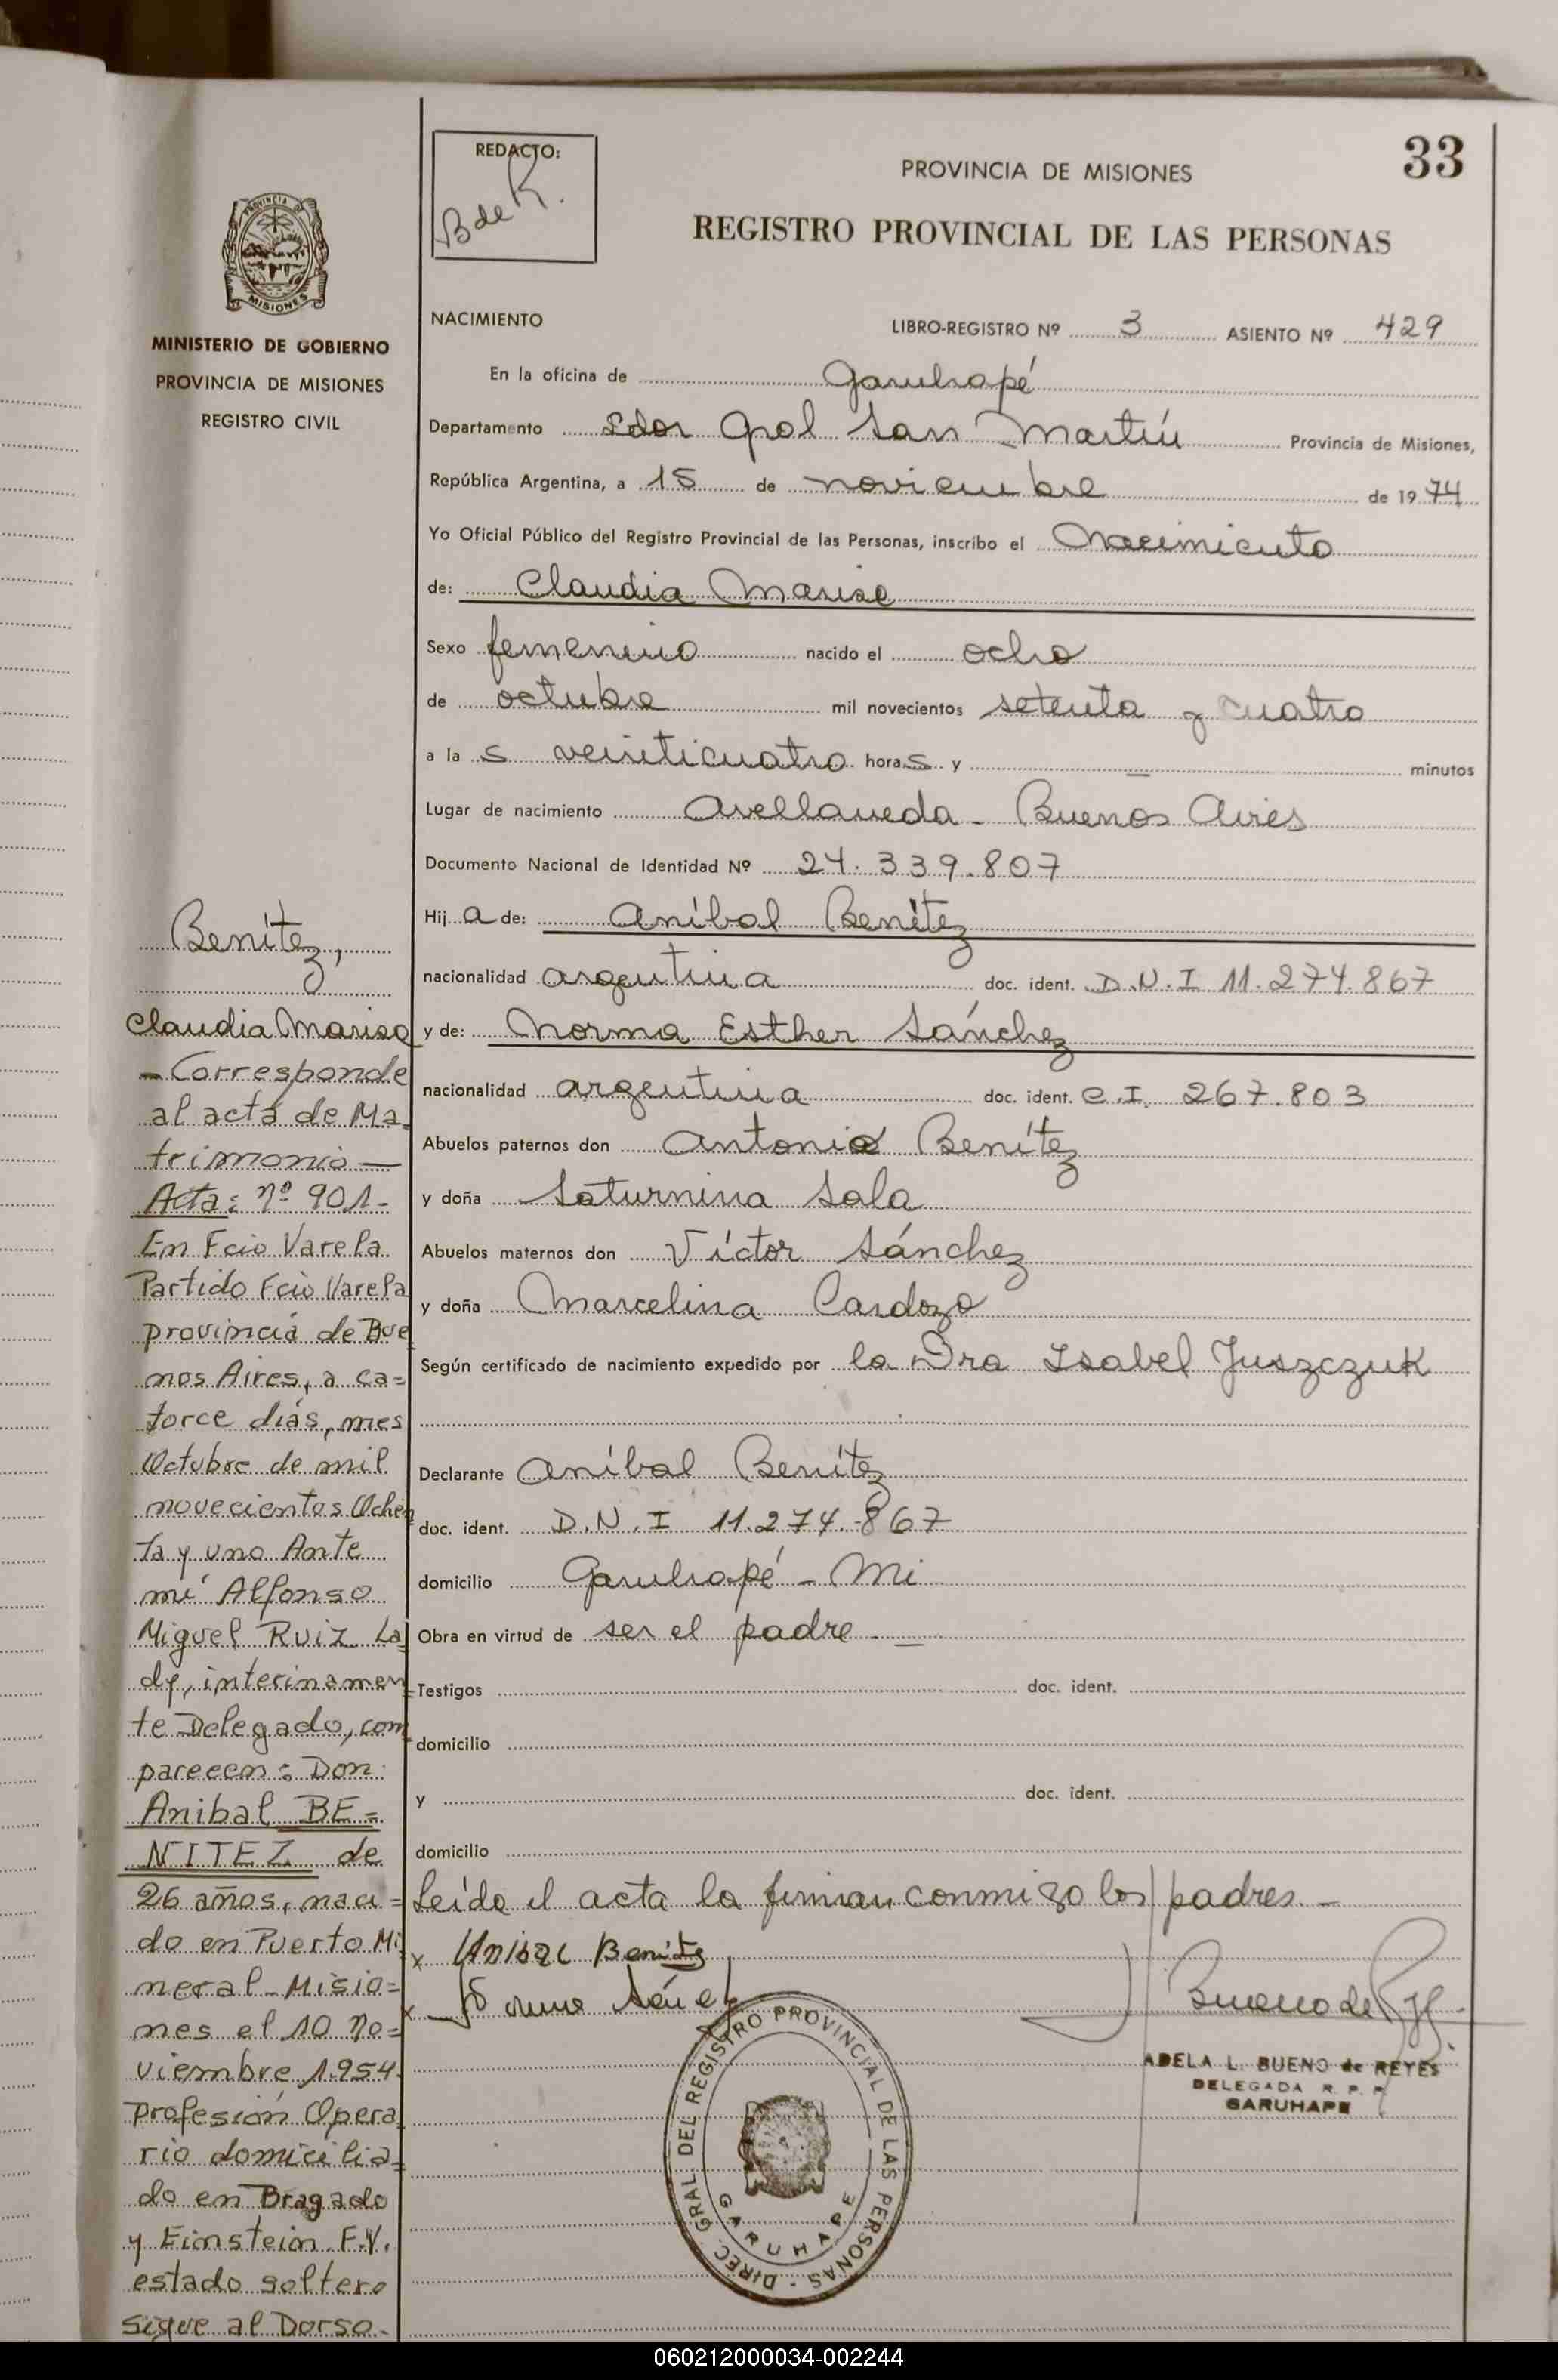 33
REDACTO:
B de R.
PROVINCIA DE MISIONES
REGISTRO PROVINCIAL DE LAS PERSONAS
PROVINCIA DE
MISIONES
MINISTERIO DE GOBIERNO
PROVINCIA DE MISIONES
REGISTRO CIVIL
NACIMIENTO LIBRO-REGISTRO Nº 3 ASIENTO Nº 429
En la oficina de Garuhapé
Departamento Ldor Gral San Martín Provincia de Misiones,
República Argentina, a 15 de noviembre de 1974
Yo Oficial Público del Registro Provincial de las Personas, inscribo el Nacimiento
de: Claudia Marisa
Sexo femenino nacido el ocho
de octubre mil novecientos setenta y cuatro
a la s veinticuatro hora s y — minutos
Lugar de nacimiento Avellaneda - Buenos Aires
Documento Nacional de Identidad Nº 24.339.807
Hij a de: Aníbal Benítez
nacionalidad argentina doc. ident. D.N.I 11.274.867
y de: Norma Esther Sánchez
nacionalidad argentina doc. ident. C.I. 267.803
Abuelos paternos don Antonio Benítez
y doña Saturnina Sala
Abuelos maternos don Víctor Sánchez
y doña Marcelina Cardozo
Según certificado de nacimiento expedido por la Dra Isabel Juszczuk
Declarante Aníbal Benítez
doc. ident. D.N.I 11.274.867
domicilio Garuhapé - Mi
Obra en virtud de ser el padre - —
Testigos doc. ident.
domicilio
y doc. ident.
domicilio
Leída el acta la firman conmigo los padres. -
x Anibal Benitez
x Norma
Bueno de
ADELA L. BUENO de REYES
DELEGADA R. P. P.
GARUHAPE
DIREC. GRAL. DEL REGISTRO PROVINCIAL DE LAS PERSONAS -
GARUHAPE
Benítez,
Claudia Marisa
- Corresponde
al acta de Ma-
trimonio —
Acta: nº 901-
En Fcio Varela
Partido Fcio Varela
provincia de Bue
nos Aires, a ca=
torce días, mes
Octubre de mil
novecientos Ochen
ta y uno Ante
mí Alfonso
Miguel Ruiz La=
dy, interinamen=
te Delegado, com
parecen: Don:
Anibal BE=
NITEZ de
26 años, naci=
do en Puerto Mi
neral - Misio=
nes el 10 No=
viembre 1.954.
profesión Opera
rio domicilia=
do en Bragado
y Einstein. F.V.
estado soltero
sigue al Dorso.
060212000034-002244